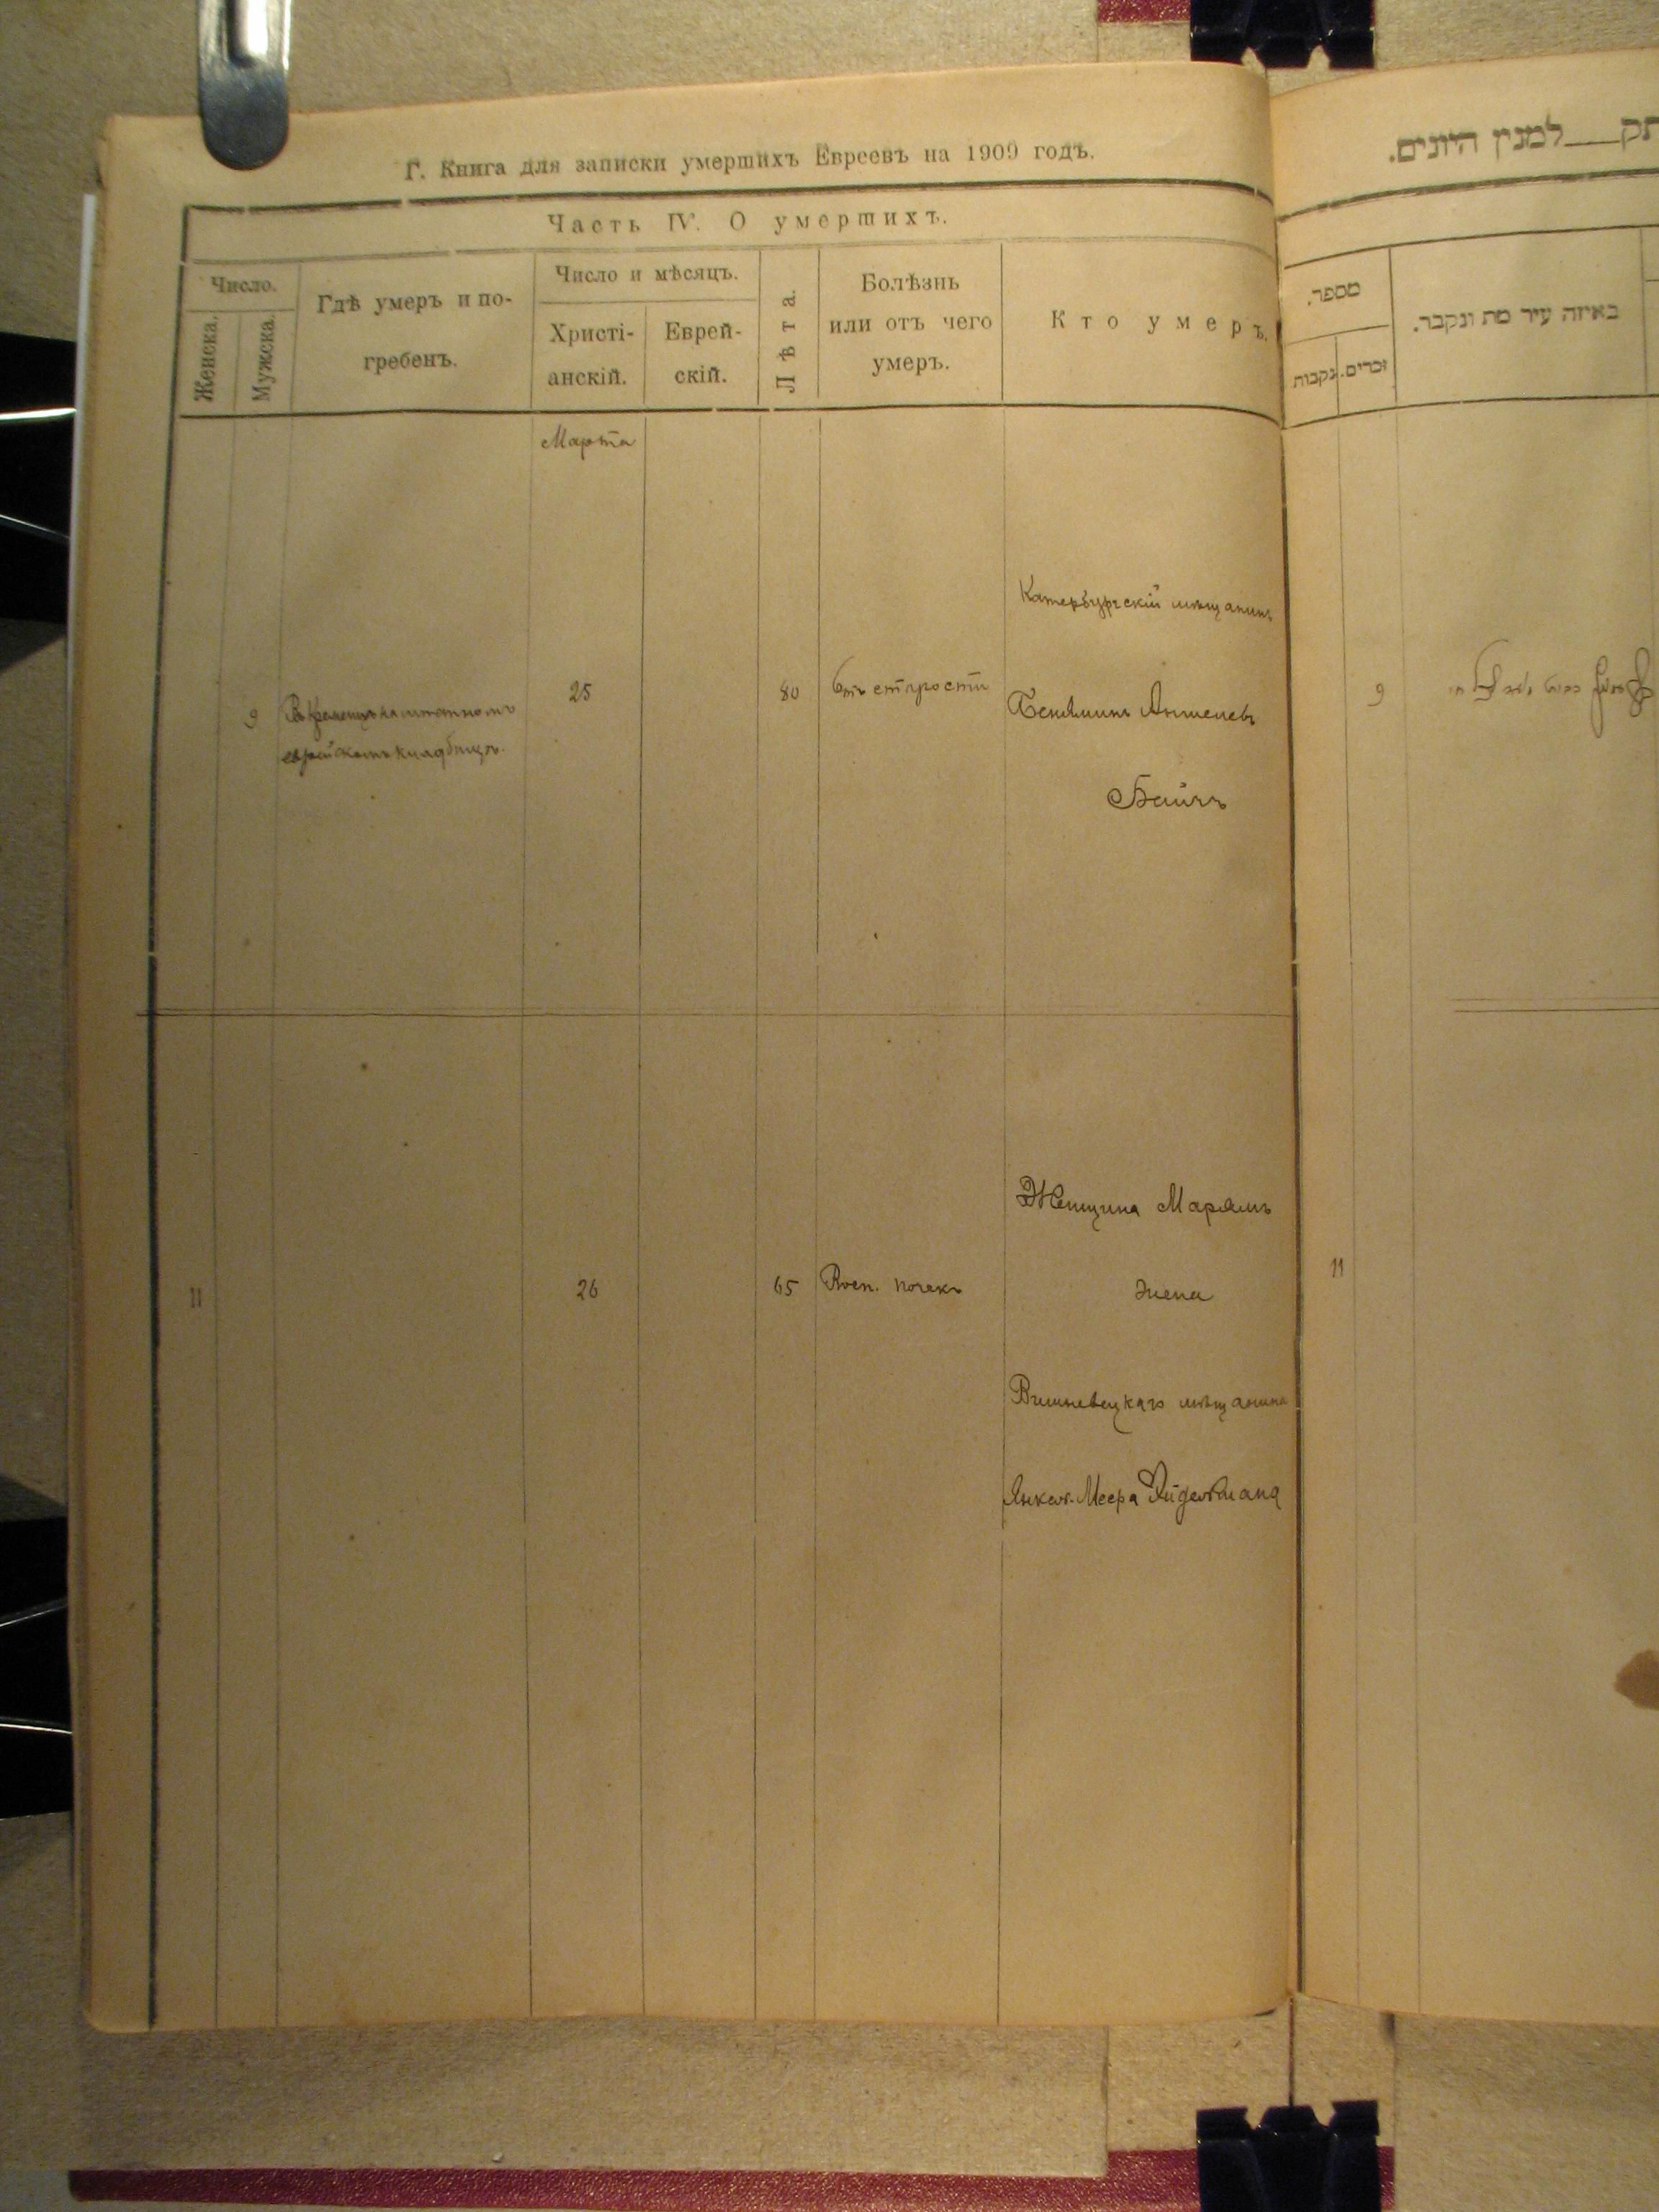 Г. Книга для записки умершихъ Евреевъ на 1909 годъ.
Часть IV. О умершихъ.
Число.
Женска.
Мужска.
Гдѣ умеръ и по-
гребенъ.
Число и мѣсяцъ.
Христі-
анскій.
Еврей-
скій.
Лѣта.
Болѣзнь
или отъ чего
умеръ.
Кто умеръ.
Марта
9
Въ Кременцѣ на
еврейскомъ кладбищѣ.
25
80
Отъ старости
Катербургскій мѣщанинъ
Беньяминъ Аншелевъ
11
26
65
Восп. почекъ
Женщина Марямъ
жена
Вишневецкаго мѣщанина
Янкель-Меера
תק__למנין היונים.
מספר.
נקבות.
זכרים.
באיזה עיר מת ונקבר.
9
11